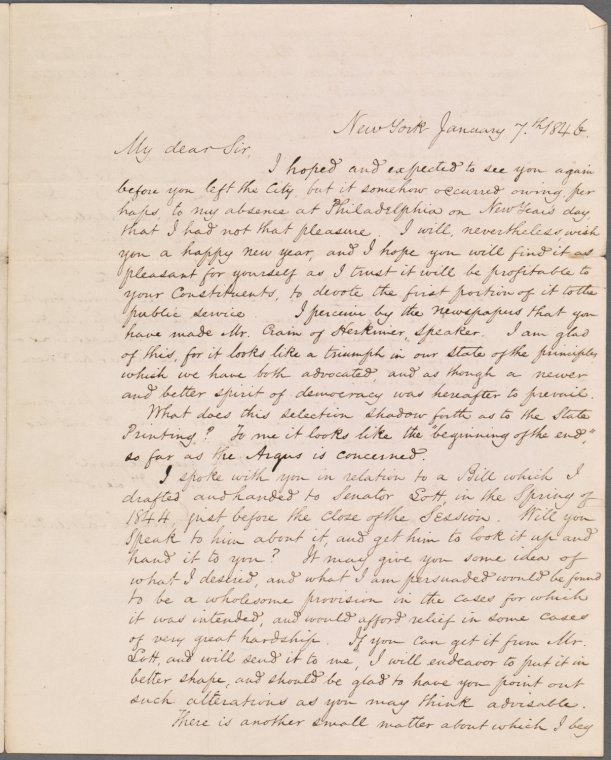 New York January 7.th 1846.
My dear Sir,
I hoped and expected to see you again
before you left the City, but it somehow occurred owing per
haps, to my absence at Philadelphia on New Years day,
that I had not that pleasure. I will, nevertheless wish
you a happy new year, and I hope you will find it as
pleasant for yourself as I trust it will be profitable to
your Constituents, to devote the first portion of it to the
public service. I perceive by the newspapers that you
have made Mr. Crain of Herkimer, speaker. I am glad
of this, for it looks like a triumph in our State of the principles
which we have both advocated, and as though a newer
and better spirit of democracy was hereafter to prevail.
What does this selection shadow forth as to the State
Printing? To me it looks like the "beginning of the end",
so far as the Argus is concerned.
I spoke with you in relation to a Bill which I
drafted and handed to Senator Lott, in the Spring of
1844, just before the close of the Session. Will you
speak to him about it, and get him to look it up and
hand it to you? It may give you some idea of
what I desired, and what I am persuaded would be found
to be a wholesome provision in the cases for which
it was intended, and would afford relief in some cases
of very great hardship. If you can get it from Mr.
Lott, and will send it to me, I will endeavor to put it in
better shape, and should be glad to have you point out
such alterations as you may think advisable.
There is another small matter about which I beg